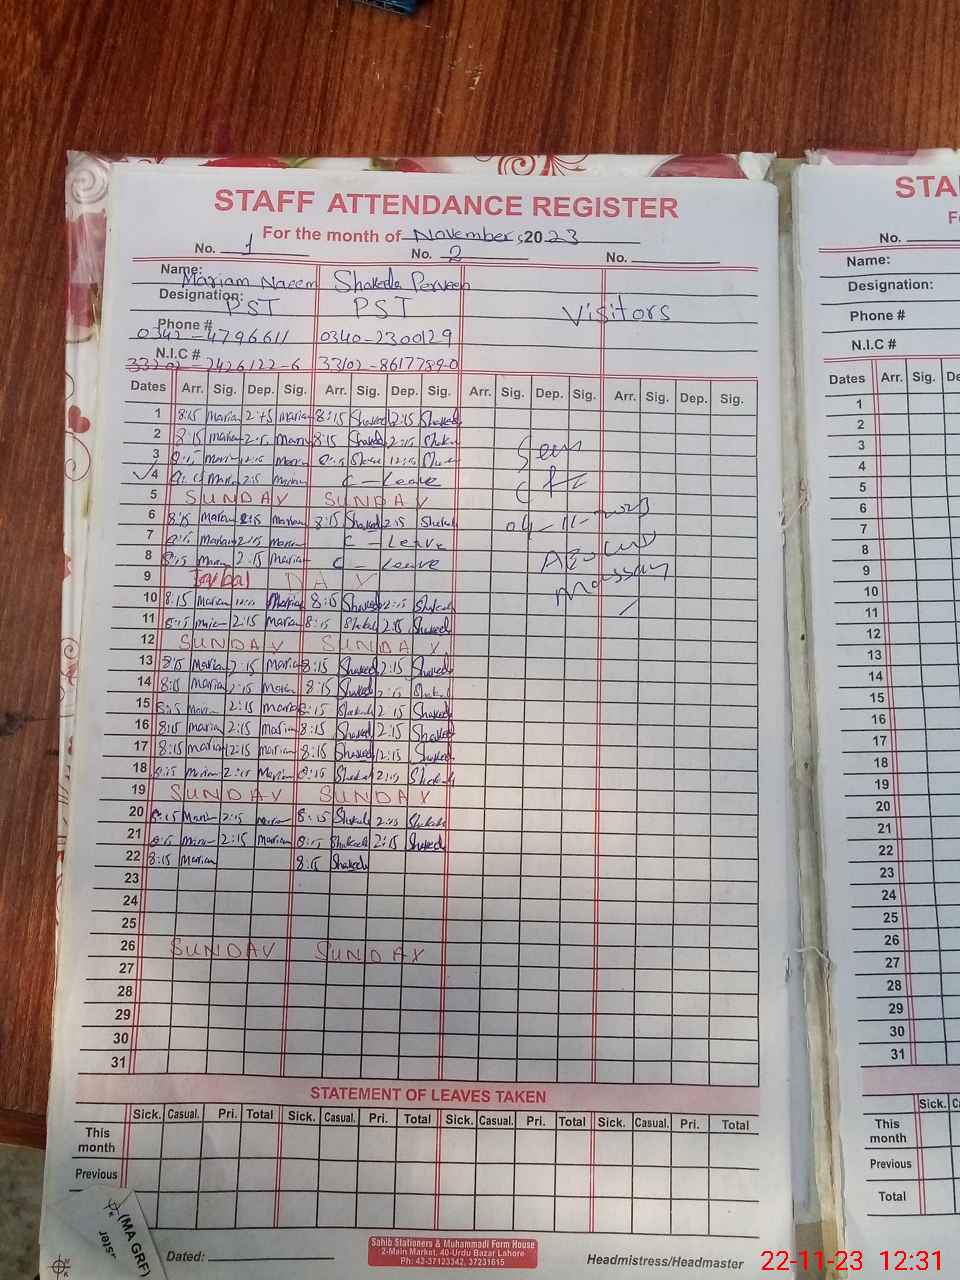 STAFF ATTENDANCE REGISTER
For the month of November, 2023
No. 1 No. 2 No.
Name: Mariam Naeem Shakeela Perveen
Designation: PST PST Visitors
Phone # 0342-4796611 0340-2300129
N.I.C # 33102-8617789-0
Dates Arr. Sig. Dep. Sig. Arr. Sig. Dep. Sig. Arr. Sig. Dep. Sig. Arr. Sig. Dep. Sig.
1 8:15 Maria 2:15 Maria 8:15 Shakeel 2:15 Shakeel
2 8:15 Maria 2:15 8:15 Shakeel 2:15
3 8:15 12:15
4 8:15 2:15 C - Leave
Seen
5 SUNDAY SUNDAY
04-11-2023
6 8:15 Mariam 2:15 Mariam 8:15 Shakeel 2:15 Shakeel
7 8:15 Mariam 2:15 Mariam C - Leave
8 8:15 2:15 Maria C - Leave
9 Iqbal DAY
10 8:15 Mariam 12:15 Mariam 8:15 Shakeel 2:15 Shakeel
11 8:15 2:15 Maria 8:15 2:15 Shakeel
12 SUNDAY SUNDAY
13 8:15 Maria 2:15 Maria 8:15 Shakeel 2:15 Shakeel
14 8:15 Maria 2:15 Maria 8:15 Shakeel 2:15 Shakeel
15 8:15 2:15 Maria 8:15 Shakeel 2:15 Shakeel
16 8:15 Maria 2:15 Maria 8:15 Shakeel 2:15 Shakeel
17 8:15 Maria 12:15 Maria 8:15 Shakeel 12:15 Shakeel
18 8:15 Mariam 2:15 Mariam 8:15 Shakeel 2:15 Shakeel
19 SUNDAY SUNDAY
20 8:15 2:15 8:15 Shakeel 2:15
21 8:15 2:15 Mariam 8:15 Shakeel 2:15 Shakeel
22 8:15 Mariam 8:15 Shakeel
23
24
25
26 SUNDAY SUNDAY
27
28
29
30
31
STATEMENT OF LEAVES TAKEN
Sick. Casual. Pri. Total Sick. Casual. Pri. Total Sick. Casual. Pri. Total Sick. Casual. Pri. Total
This month
Previous
(MA GRF)
Dated:
Sahib Stationers & Muhammadi Form House
2-Main Market, 40-Urdu Bazar Lahore
Ph: 42-37123342, 37231615
Headmistress/Headmaster
STA
F
No.
Name:
Designation:
Phone #
N.I.C #
Dates Arr. Sig. De
1
2
3
4
5
6
7
8
9
10
11
12
13
14
15
16
17
18
19
20
21
22
23
24
25
26
27
28
29
30
31
Sick. Ca
This month
Previous
Total
22-11-23 12:31